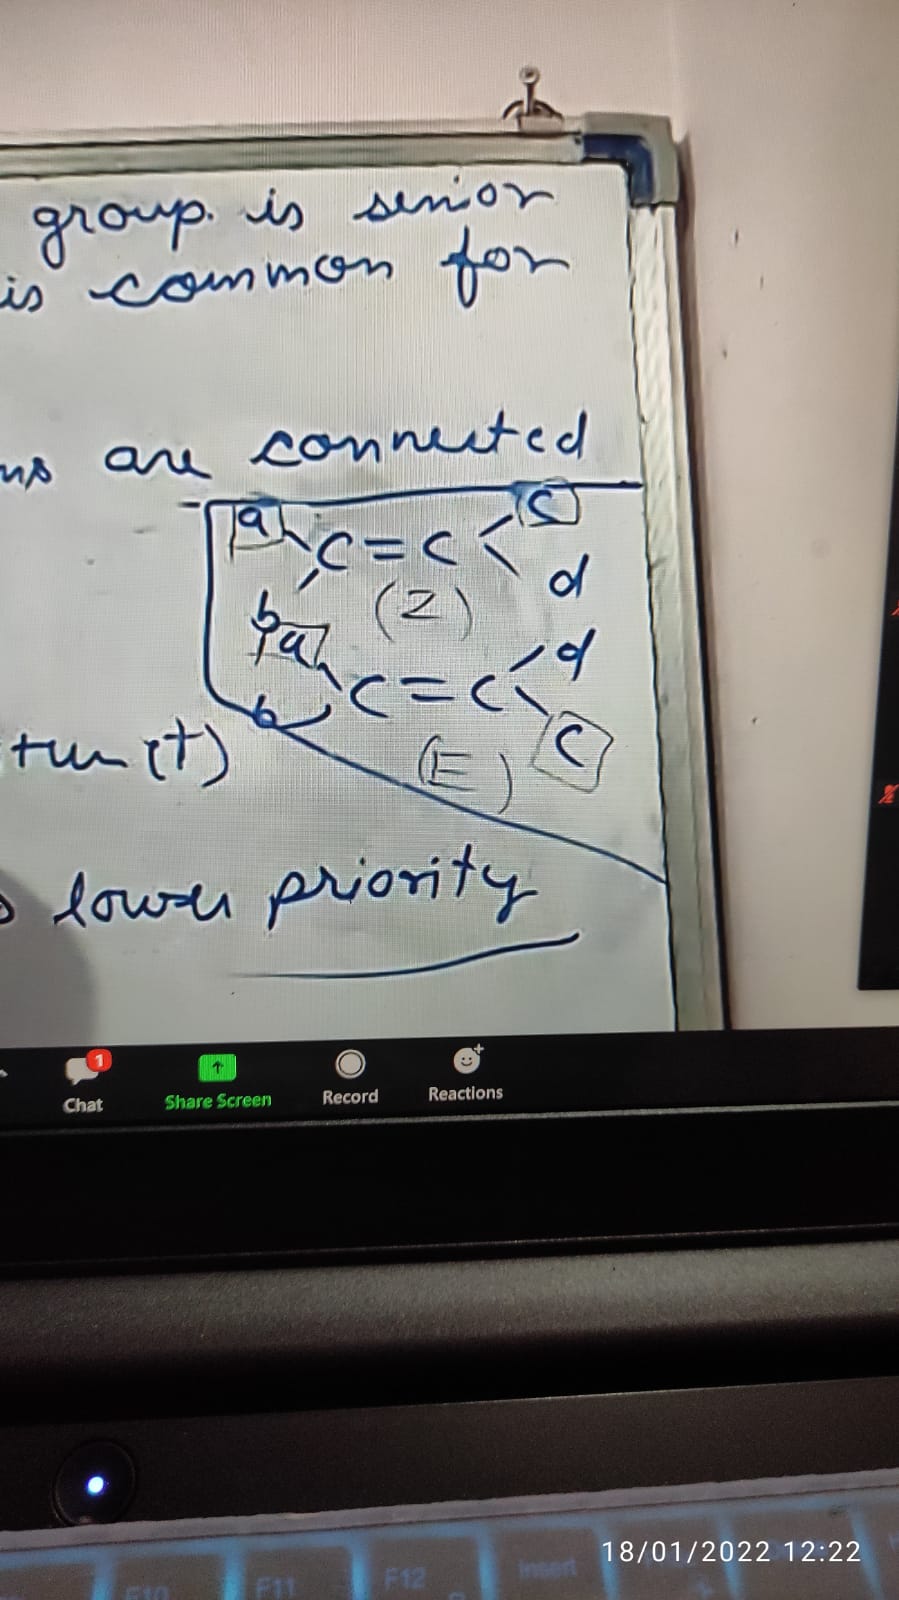 group. is senior
is common for
are connected
a c
C = C
b d
(Z)
a d
C = C
b c
(E)
lower priority
1
Chat Share Screen Record Reactions
F10 F11 F12 Insert
18/01/2022 12:22